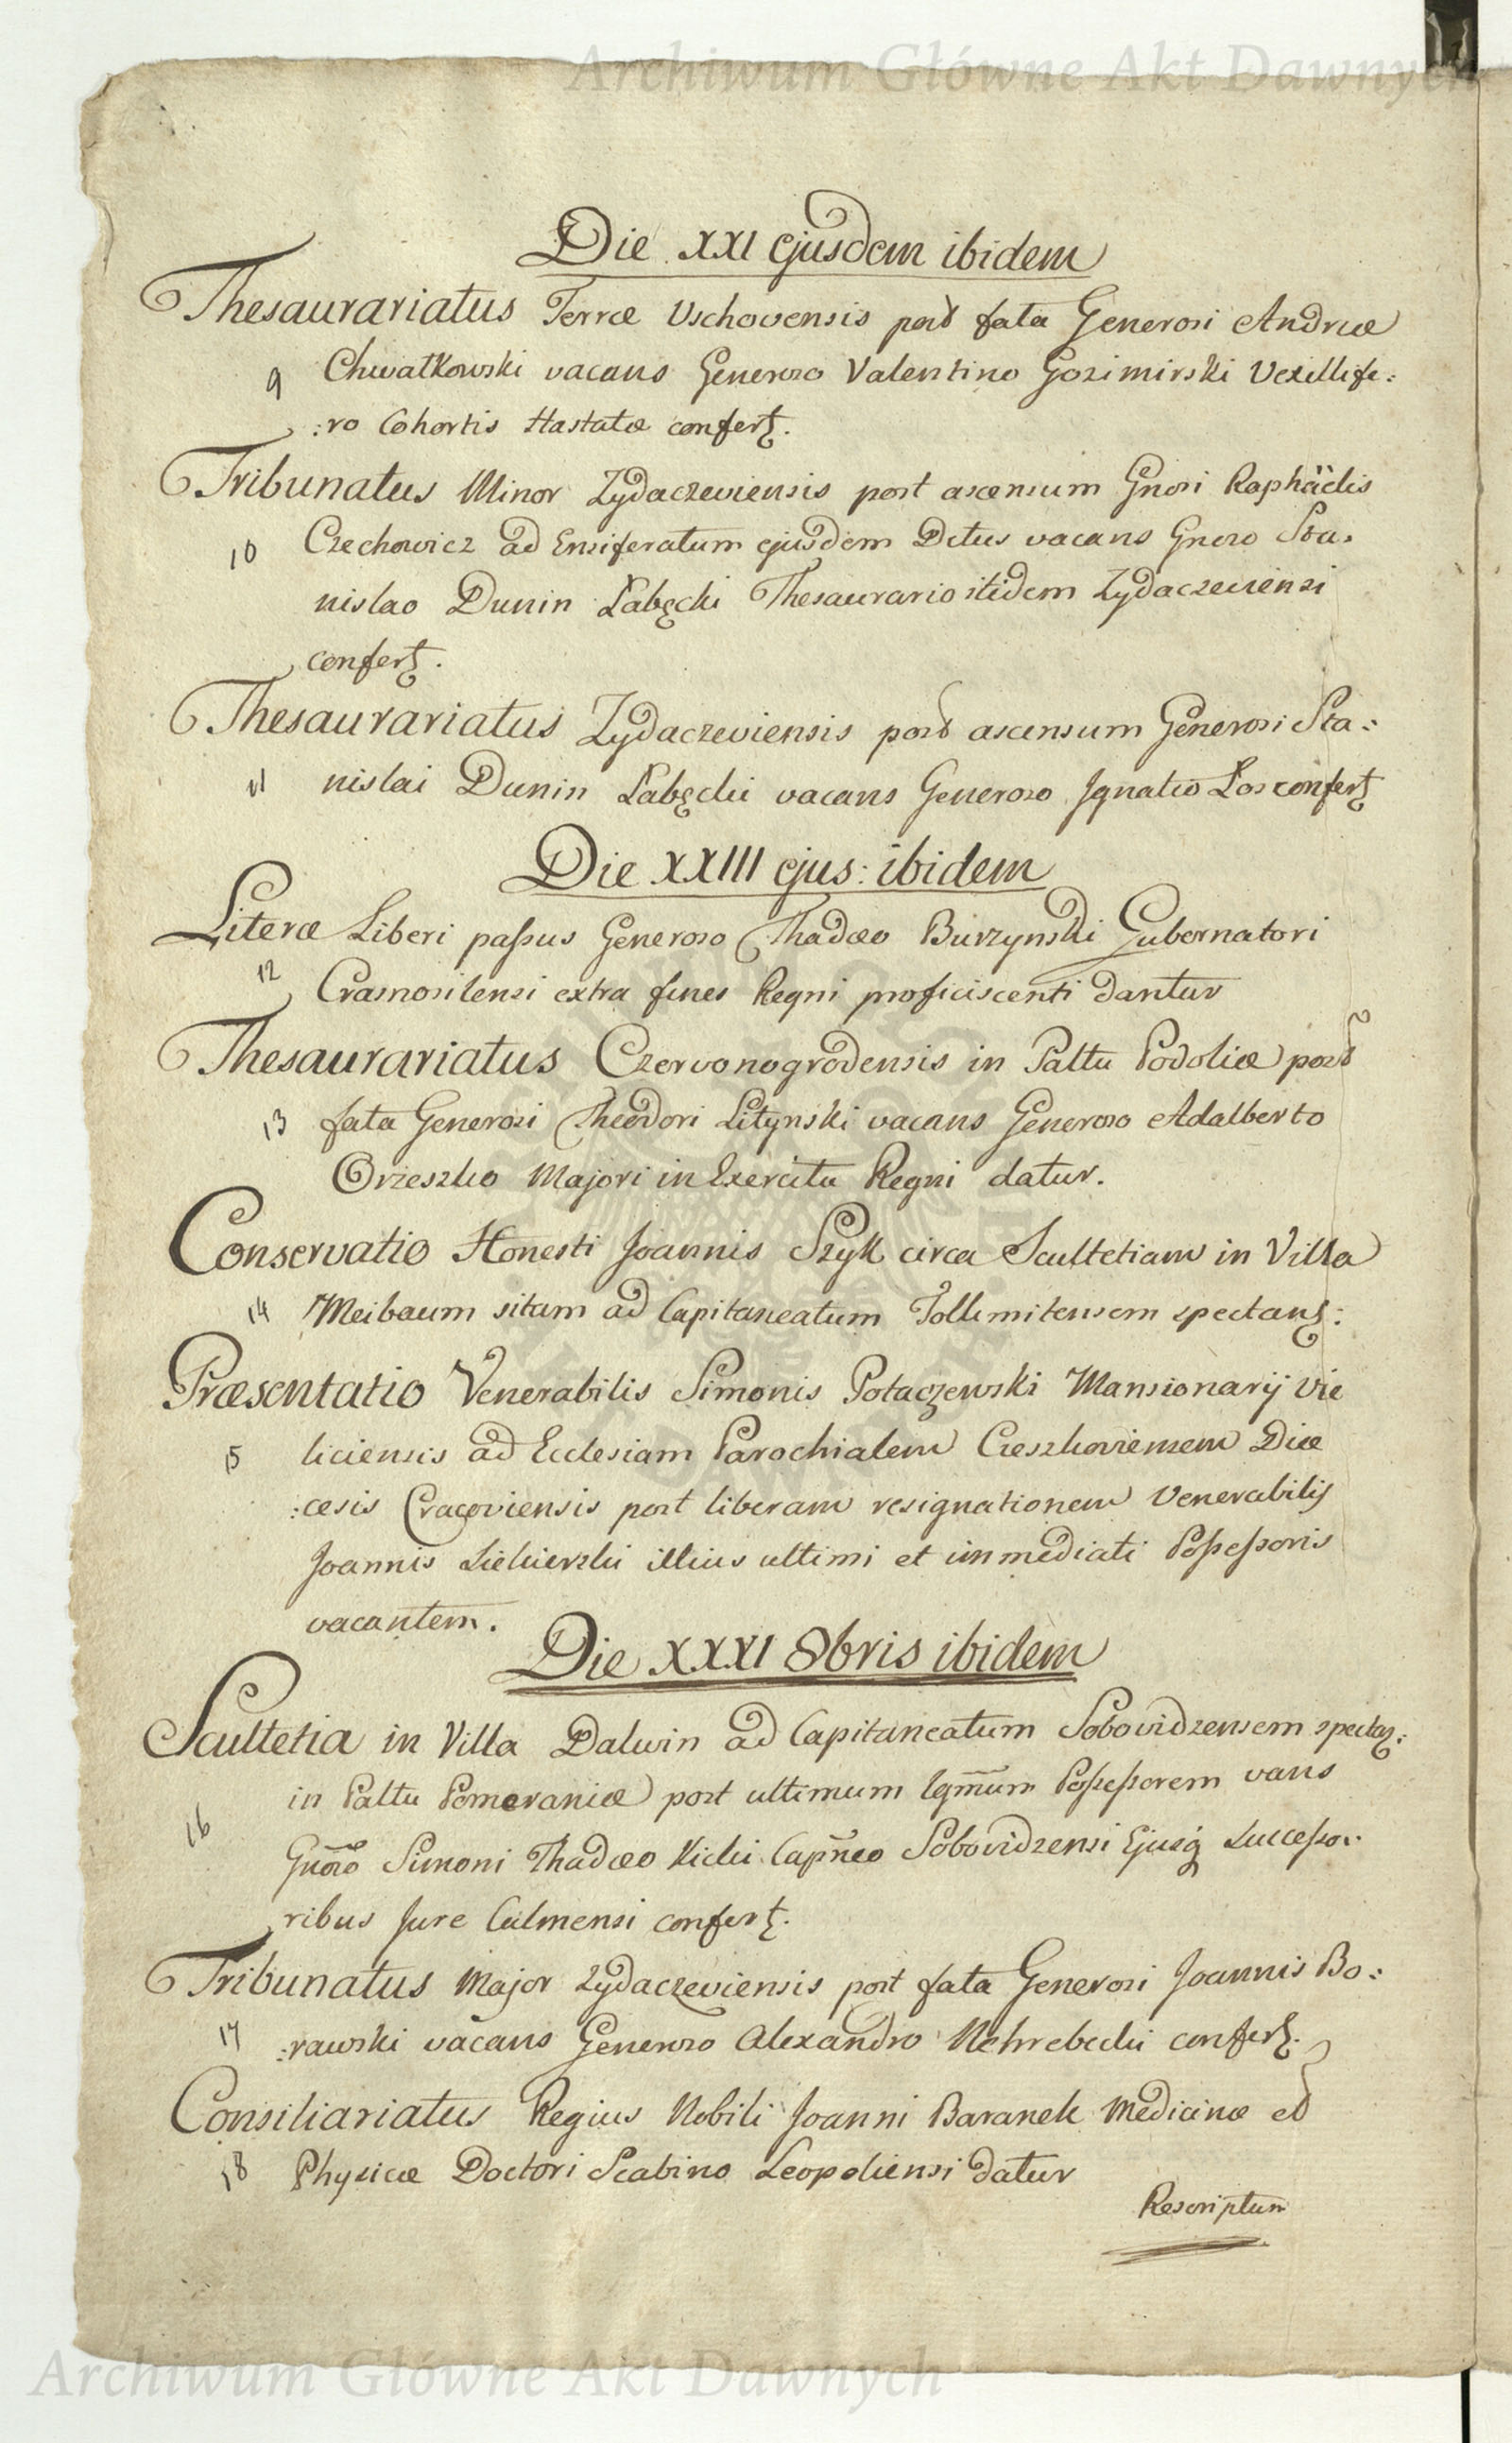 Archiwum Główne Akt Dawnych
Die XXI ejusdem ibidem
Thesaurariatus Terræ Uschovensis post fata Generosi Andreæ
9 Chwałkowski vacans Generoso Valentino Gozimirski Vexillife:
:ro Cohortis Hastatæ confertz.
Tribunatus Minor Zydaczeviensis post ascensum Gnosi Raphäelis
10 Czechowicz ad Ensiferatum ejusdem Dctus vacans Gnoso Sta.
nislao Dunin Łabęcki Thesaurario itidem Zydaczeviensi
confertz.
Thesaurariatus Zydaczeviensis post ascensum Generosi Sta:
11 nislai Dunin Łabęcki vacans Generoso Ignatio Łos confertz
Die XXIII ejus: ibidem
Literæ Liberi passus Generoso Thadæo Burzynski Gubernatori
12 Crasnosilensi extra fines Regni proficiscenti dantur
Thesaurariatus Czervonogrodensis in Paltu Podoliæ post
13 fata Generosi Theodori Litynski vacans Generoso Adalberto
Orzeszko Majori in Exercitu Regni datur.
Conservatio Honesti Joannis Szyk circa Scultetiam in Villa
14 Meibaum sitam ad Capitaneatum Tolkmitensem spectantz:
Præsentatio Venerabilis Simonis Potaczewski Mansionarij Vie
15 liciensis ad Ecclesiam Parochialem Cieszkoviensem Diæ
:cesis Cracoviensis post liberam resignationem Venerabilis
Joannis Siekierzki illius ultimi et immediati Possessoris
vacantem.
Die XXXI 8bris ibidem
Scultetia in Villa Dalwin ad Capitaneatum Sobovidzensem spectaz:
in Paltu Pomeraniæ post ultimum lgmum Possessorem vans
16 Gnoso Simoni Thadæo Kicki Capneo Sobovidzensi Ejusq Successo:
ribus Jure Culmensi confertz.
Tribunatus Major Zydaczeviensis post fata Generosi Joannis Bo:
17 :rawski vacans Generoso Alexandro Nehrebecki confertz.
Consiliariatus Regius Nobili Joanni Baranek Medicinæ et
18 Physicæ Doctori Scabino Leopoliensi datur
Rescriptum
Archiwum Główne Akt Dawnych